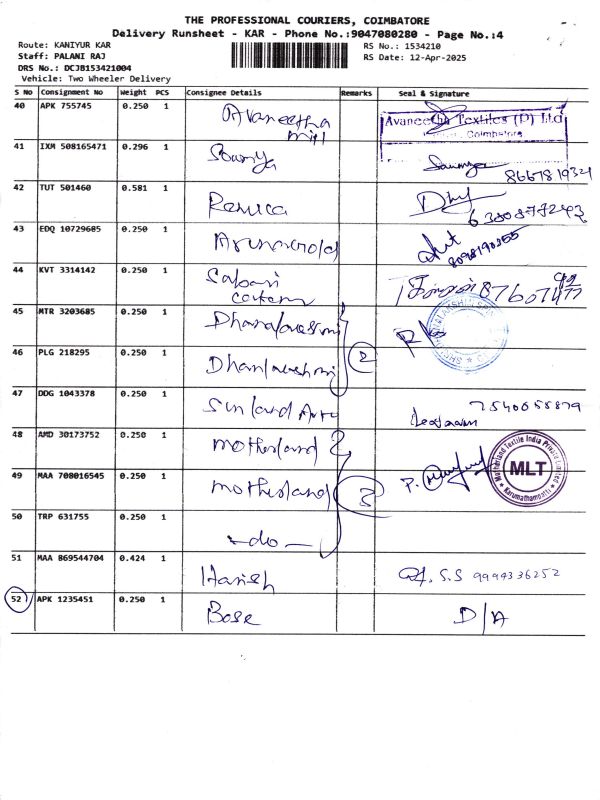 THE PROFESSIONAL COURIERS, COIMBATORE
Delivery Runsheet - KAR - Phone No.:9047080280 - Page No.:4
Route: KANIYUR KAR
RS No.: 1534210
Staff: PALANI RAJ
RS Date: 12-Apr-2025
DRS No.: DCJB153421004
Vehicle: Two Wheeler Delivery
S No Consignment No Weight PCS Consignee Details Remarks Seal & Signature
40 APK 755745 0.250 1 Avaneetha
mill
Avaneetha Textiles (P) Ltd
Coimbatore
41 IXM 508165471 0.296 1 Sowmya
Sowmya
42 TUT 501460 0.581 1 Renuca
43 EDQ 10729685 0.250 1
8098190355
44 KVT 3314142 0.250 1 Sabari
45 MTR 3203685 0.250 1 Dhanalakshmi
46 PLG 218295 0.250 1 Dhanlakshmi
2
47 DDG 1043378 0.250 1 Sunland Auto
7540055879
48 AMD 30173752 0.250 1 motherland
49 MAA 708016545 0.250 1 motherland
3
Motherland Textile India Private Limited
MLT
Karumathampatti
50 TRP 631755 0.250 1 -do-
51 MAA 869544704 0.424 1 Harish
S.S 9994336252
52 APK 1235451 0.250 1 Bose D/A